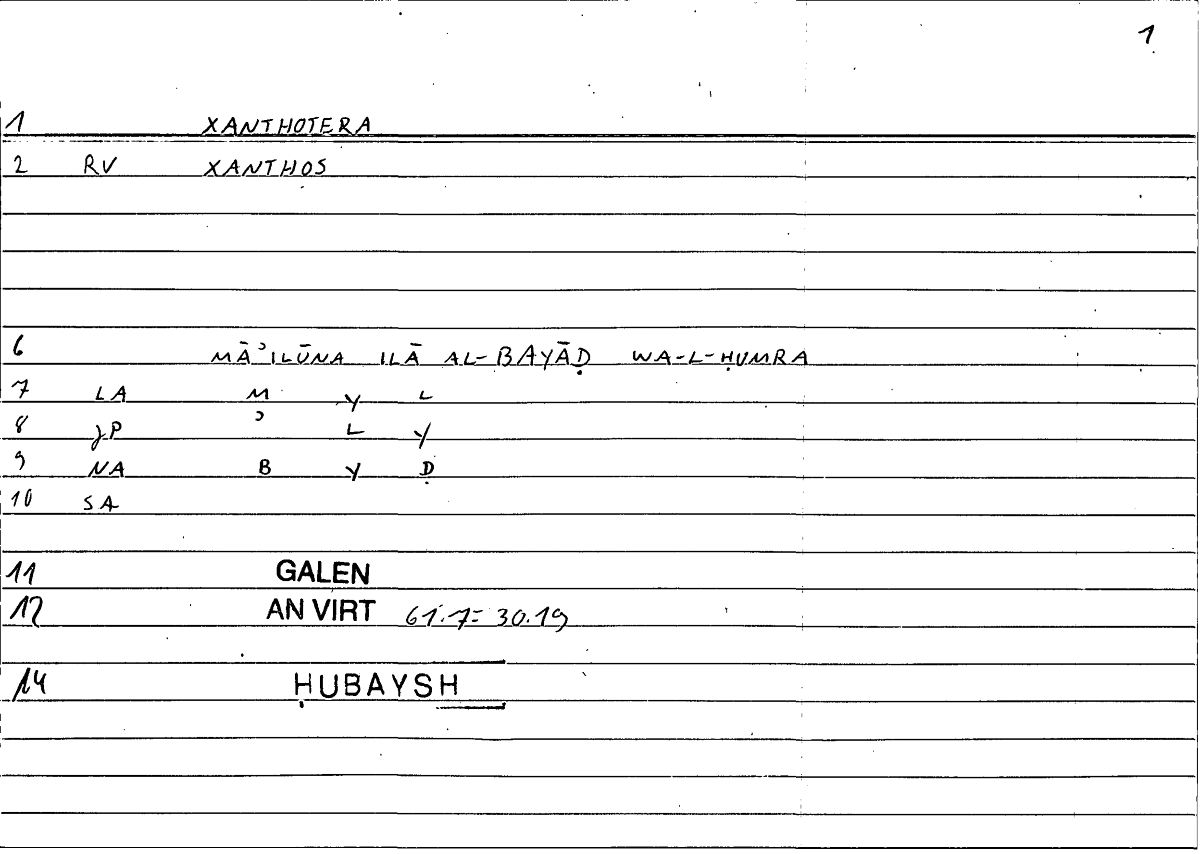 1
1 XANTHOTERA
2 RV XANTHOS
6 MĀʾILŪNA ILĀ AL-BAYĀḌ WA-L-ḤUMRA
7 LA M Y L
8 JP ʾ L Y
9 NA B Y Ḍ
10 SA
11 GALEN
12 AN VIRT 61.7= 30.19
14 ḤUBAYSH